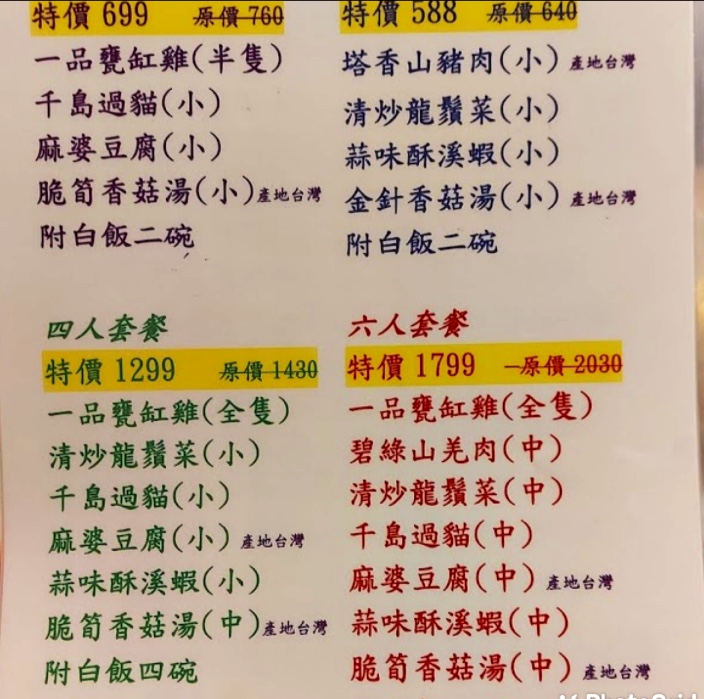 特價 699 原價 760
一品甕缸雞(半隻)
千島過貓(小)
麻婆豆腐(小)
脆筍香菇湯(小)產地台灣
附白飯二碗
特價 588 原價 640
塔香山豬肉(小) 產地台灣
清炒龍鬚菜(小)
蒜味酥溪蝦(小)
金針香菇湯(小) 產地台灣
附白飯二碗
四人套餐
特價 1299 原價 1430
一品甕缸雞(全隻)
清炒龍鬚菜(小)
千島過貓(小)
麻婆豆腐(小) 產地台灣
蒜味酥溪蝦(小)
脆筍香菇湯(中)產地台灣
附白飯四碗
六人套餐
特價 1799 原價 2030
一品甕缸雞(全隻)
碧綠山羌肉(中)
清炒龍鬚菜(中)
千島過貓(中)
麻婆豆腐(中) 產地台灣
蒜味酥溪蝦(中)
脆筍香菇湯(中) 產地台灣